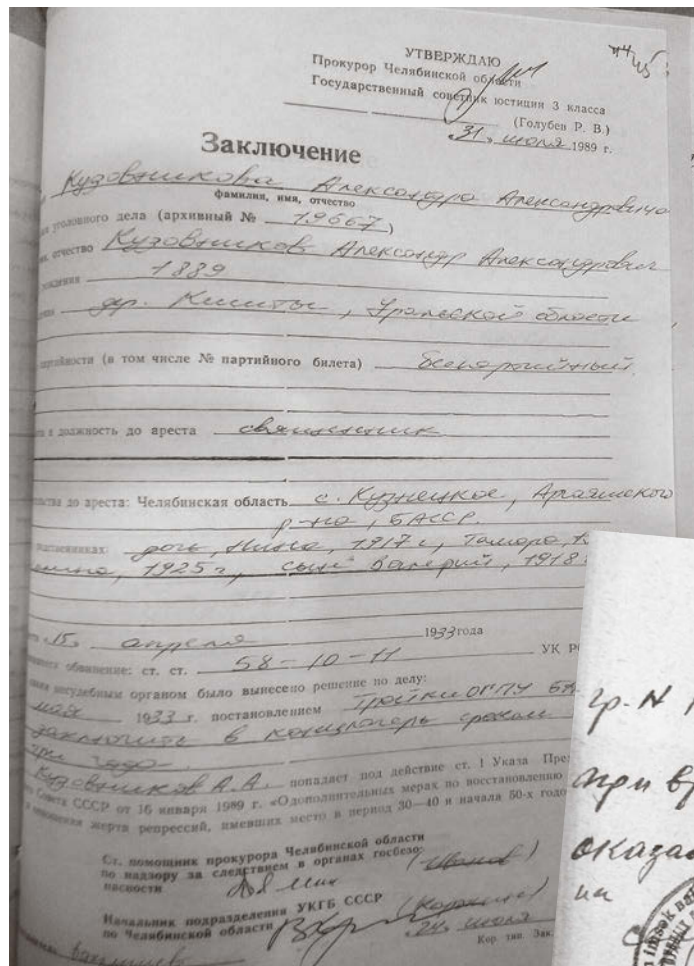 УТВЕРЖДАЮ
Прокурор Челябинской области
Государственный советник юстиции 3 класса
(Голубев Р. В.)
„31„ июля 1989 г.
45
Заключение
Кузовникова Александра Александровича
фамилия, имя, отчество
уголовного дела (архивный № 19667)
отчество Кузовников Александр Александрович
рождения 1889
др. , Уральской области
партийности (в том числе № партийного билета) беспартийный
и должность до ареста священник
до ареста: Челябинская область с. Кузнецкое, Аргаяшского
р-на, БАССР.
родственниках: дочь, Нина, 1917 г, Тамара,
1925 г, сын Валерий, 1918
„15„ апреля 1933 года
обвинение: ст. ст. 58-10-11 УК
несудебным органом было вынесено решение по делу:
мая 1933 г. постановлением Тройки ОГПУ
заключить в концлагерь сроком
три года.
Кузовников А.А. попадает под действие ст. 1 Указа
Совета СССР от 16 января 1989 г. «О дополнительных мерах по восстановлению
в отношении жертв репрессий, имевших место в период 30—40 и начала 50-х
Ст. помощник прокурора Челябинской области
по надзору за следствием в органах госбезо-
пасности
Начальник подразделения УКГБ СССР
по Челябинской области
„24„ июля
Кор. тип. Зак.
гр. N
при
оказа
на